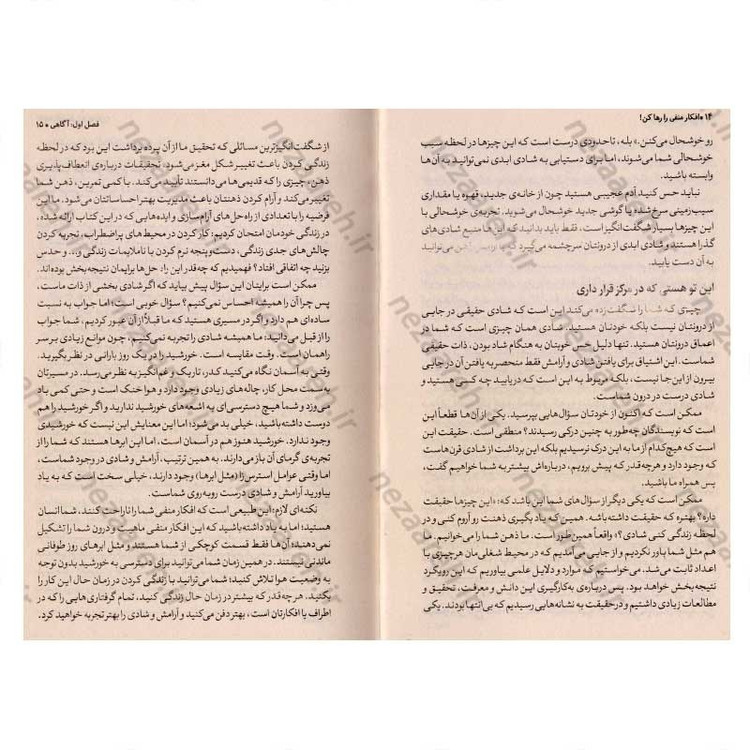 ۱۴ • افکار منفی را رها کن!
رو خوشحال می‌کنن.» بله، تاحدودی درست است که این چیزها در لحظه سبب
خوشحالی شما می‌شوند، اما برای دستیابی به شادی ابدی نمی‌توانید به آن‌ها
وابسته باشید.
نباید حس کنید آدم عجیبی هستید چون از خانه‌ی جدید، قهوه یا مقداری
سیب‌زمینی سرخ‌شده یا گوشی جدید خوشحال می‌شوید. تجربه‌ی خوشحالی با
این چیزها بسیار شگفت‌انگیز است، فقط باید بدانید که این‌ها منبع شادی‌های
گذرا هستند و شادی ابدی از درونتان سرچشمه می‌گیرد که با آرامش ذهن می‌توانید
به آن دست یابید.
این تو هستی که در مرکز قرار داری
چیزی که شما را شگفت‌زده می‌کند این است که شادی حقیقی در جایی
از درونتان نیست بلکه خودتان هستید. شادی همان چیزی است که شما در
اعماق درونتان هستید. تنها دلیل حس خوبتان به هنگام شاد بودن، ذات حقیقی
شماست. این اشتیاق برای یافتن شادی و آرامش فقط منحصر به یافتن آن در جایی
بیرون از این‌جا نیست، بلکه مربوط به این است که دریابید چه کسی هستید و
شادی درست در درون شماست.
ممکن است که اکنون از خودتان سؤال‌هایی بپرسید. یکی از آن‌ها قطعاً این
است که نویسندگان چه‌طور به چنین درکی رسیدند؟ منطقی است. حقیقت این
است که هیچ‌کدام از ما به این درک نرسیدیم بلکه این برداشت از شادی از قرن‌هاست
که وجود دارد و هرچه‌قدر که پیش برویم، درباره‌اش بیشتر به شما خواهیم گفت،
پس همراه ما باشید.
ممکن است که یکی دیگر از سؤال‌های شما این باشد که: «این چیزها حقیقت
داره؟ بهتره که حقیقت داشته‌باشه. همین که یاد بگیری ذهنت رو آروم کنی و در
لحظه زندگی کنی شادی؟» واقعاً همین‌طور است. ما ذهن شما را می‌خوانیم. ما
هم مثل شما باور نکردیم و از جایی می‌آمدیم که در محیط شغلی‌مان هرچیزی با
اعداد ثابت می‌شد. می‌خواستیم که موارد و دلایل علمی بیاوریم که این رویکرد
نتیجه‌بخش خواهد بود. پس درباره‌ی به‌کارگیری این دانش و معرفت، تحقیق و
مطالعات زیادی داشتیم و درحقیقت به نشانه‌هایی رسیدیم که بی‌انتها بودند. یکی
فصل اول: آگاهی • ۱۵
از شگفت‌انگیزترین مسائلی که تحقیق ما از آن پرده برداشت این بود که در لحظه
زندگی کردن باعث تغییر شکل مغز می‌شود، تحقیقات درباره‌ی انعطاف‌پذیری
ذهن، چیزی را که قدیمی‌ها می‌دانستند تأیید می‌کند. با کمی تمرین، ذهن شما
تغییر می‌کند و آرام کردن ذهنتان باعث مدیریت بهتر احساساتتان می‌شود. ما این
فرضیه را با تعدادی از راه‌حل‌های آرام‌سازی و ایده‌هایی که در این کتاب ارائه شده،
در زندگی خودمان امتحان کردیم: کار کردن در محیط‌های پراضطراب، تجربه کردن
چالش‌های جدی زندگی، دست‌وپنجه نرم کردن با ناملایمات زندگی و... و حدس
بزنید چه اتفاقی افتاد؟ فهمیدیم که چه‌قدر این راه‌حل‌ها برایمان نتیجه‌بخش بوده‌اند.
ممکن است برایتان این سؤال پیش بیاید که اگر شادی بخشی از ذات ماست،
پس چرا آن را همیشه احساس نمی‌کنیم؟ سؤال خوبی است؛ اما جواب به نسبت
ساده‌ای هم دارد و اگر در مسیری هستید که ما قبلاً از آن عبور کردیم، شما جواب
را از قبل می‌دانید: ما همیشه شادی را تجربه نمی‌کنیم، چون موانع زیادی بر سر
راهمان است. وقت مقایسه است. خورشید را در یک روز بارانی در نظر بگیرید.
وقتی به آسمان نگاه می‌کنید کدر، تاریک و غم‌انگیز به نظر می‌رسد. در مسیرتان
به سمت محل کار، چاله‌های زیادی وجود دارد و هوا خنک است و حتی کمی باد
می‌وزد و شما هیچ دسترسی‌ای به اشعه‌های خورشید ندارید و اگر خورشید را هم
دوست داشته‌باشید، خیلی بد می‌شود؛ اما این معنایش این نیست که خورشیدی
وجود ندارد. خورشید هنوز هم در آسمان است، اما این ابرها هستند که شما را از
تجربه‌ی گرمای آن باز می‌دارند. به همین ترتیب، آرامش و شادی در وجود شماست،
اما وقتی عوامل استرس‌زا (مثل ابرها) وجود دارند، خیلی سخت است که به یاد
بیاورید آرامش و شادی درست روبه‌روی شماست.
نکته‌ای لازم: این طبیعی است که افکار منفی شما را ناراحت کنند، شما انسان
هستید؛ اما به یاد داشته‌باشید که این افکار منفی ماهیت و درون شما را تشکیل
نمی‌دهند؛ آن‌ها فقط قسمت کوچکی از شما هستند و مثل ابرهای روز طوفانی
ماندنی نیستند. در همین زمان شما می‌توانید برای دسترسی به خورشید بدون توجه
به وضعیت هوا تلاش کنید؛ شما می‌توانید با زندگی کردن در زمان حال این کار را
بکنید. هرچه‌قدر که بیشتر در زمان حال زندگی کنید، تمام گرفتاری‌هایی را که در
اطراف یا افکارتان است، بهتر دفن می‌کنید و آرامش و شادی را بهتر تجربه خواهید کرد.
nezaaleh.ir